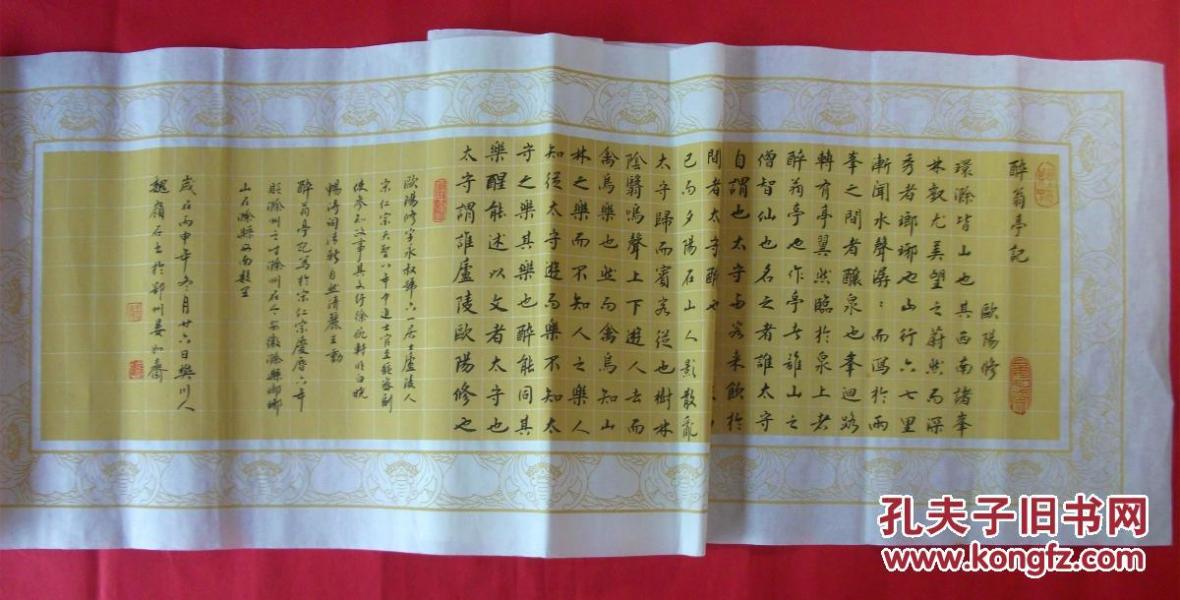 醉翁亭記
歐陽修
環滁皆山也其西南諸峯
林壑尤美望之蔚然而深
秀者瑯琊也山行六七里
漸聞水聲潺:而瀉於兩
峯之間者釀泉也峯迴路
轉有亭翼然臨於泉上者
醉翁亭也作亭者誰山之
僧智仙也名之者誰太守
自謂也太守與客来飲於
間者太守醉也
已而夕陽在山人影散亂
太守歸而賓客從也樹林
陰翳鳴聲上下遊人去而
禽鳥樂也然而禽鳥知山
林之樂而不知人之樂人
知從太守遊而樂不知太
守之樂其樂也醉能同其
樂醒能述以文者太守也
太守謂誰廬陵歐陽修也
歐陽修字永叔號六一居士廬陵人
宗仁宗天聖八年中進士官至樞密副
使參知政事其文行徐婉軒明白晓
暢詩詞清新自然清麗生動
醉翁亭記寫於宗仁宗慶曆六年
貶滁州之時滁州在今安徽滁縣瑯琊
山在滁縣西南
歲在丙申年六月廿六日樊川人
於鄧州
孔夫子旧书网
www.kongfz.com